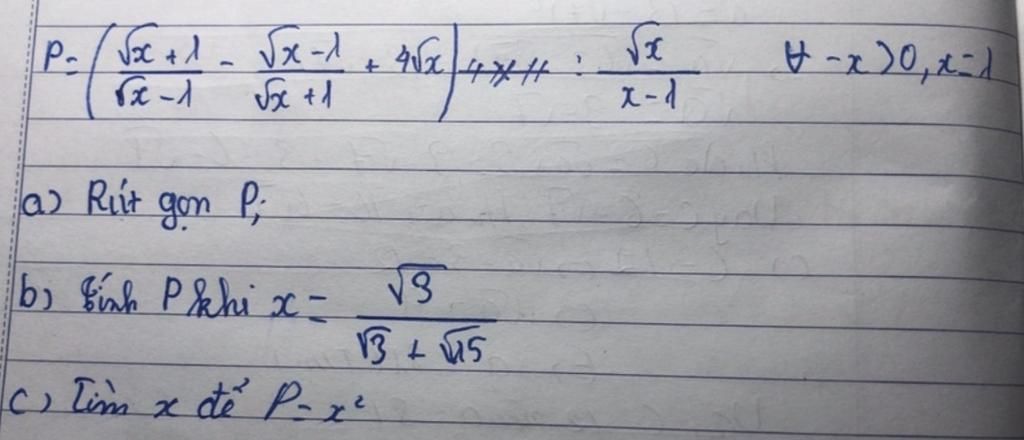 P = ( (√x + 1)/(√x - 1) - (√x - 1)/(√x + 1) + 4√x ) : √x/(x - 1) ∀ - x > 0, x = 1
a) Rút gọn P;
b) tính P khi x = √3/(√3 + √15)
c) Tìm x để P = x²